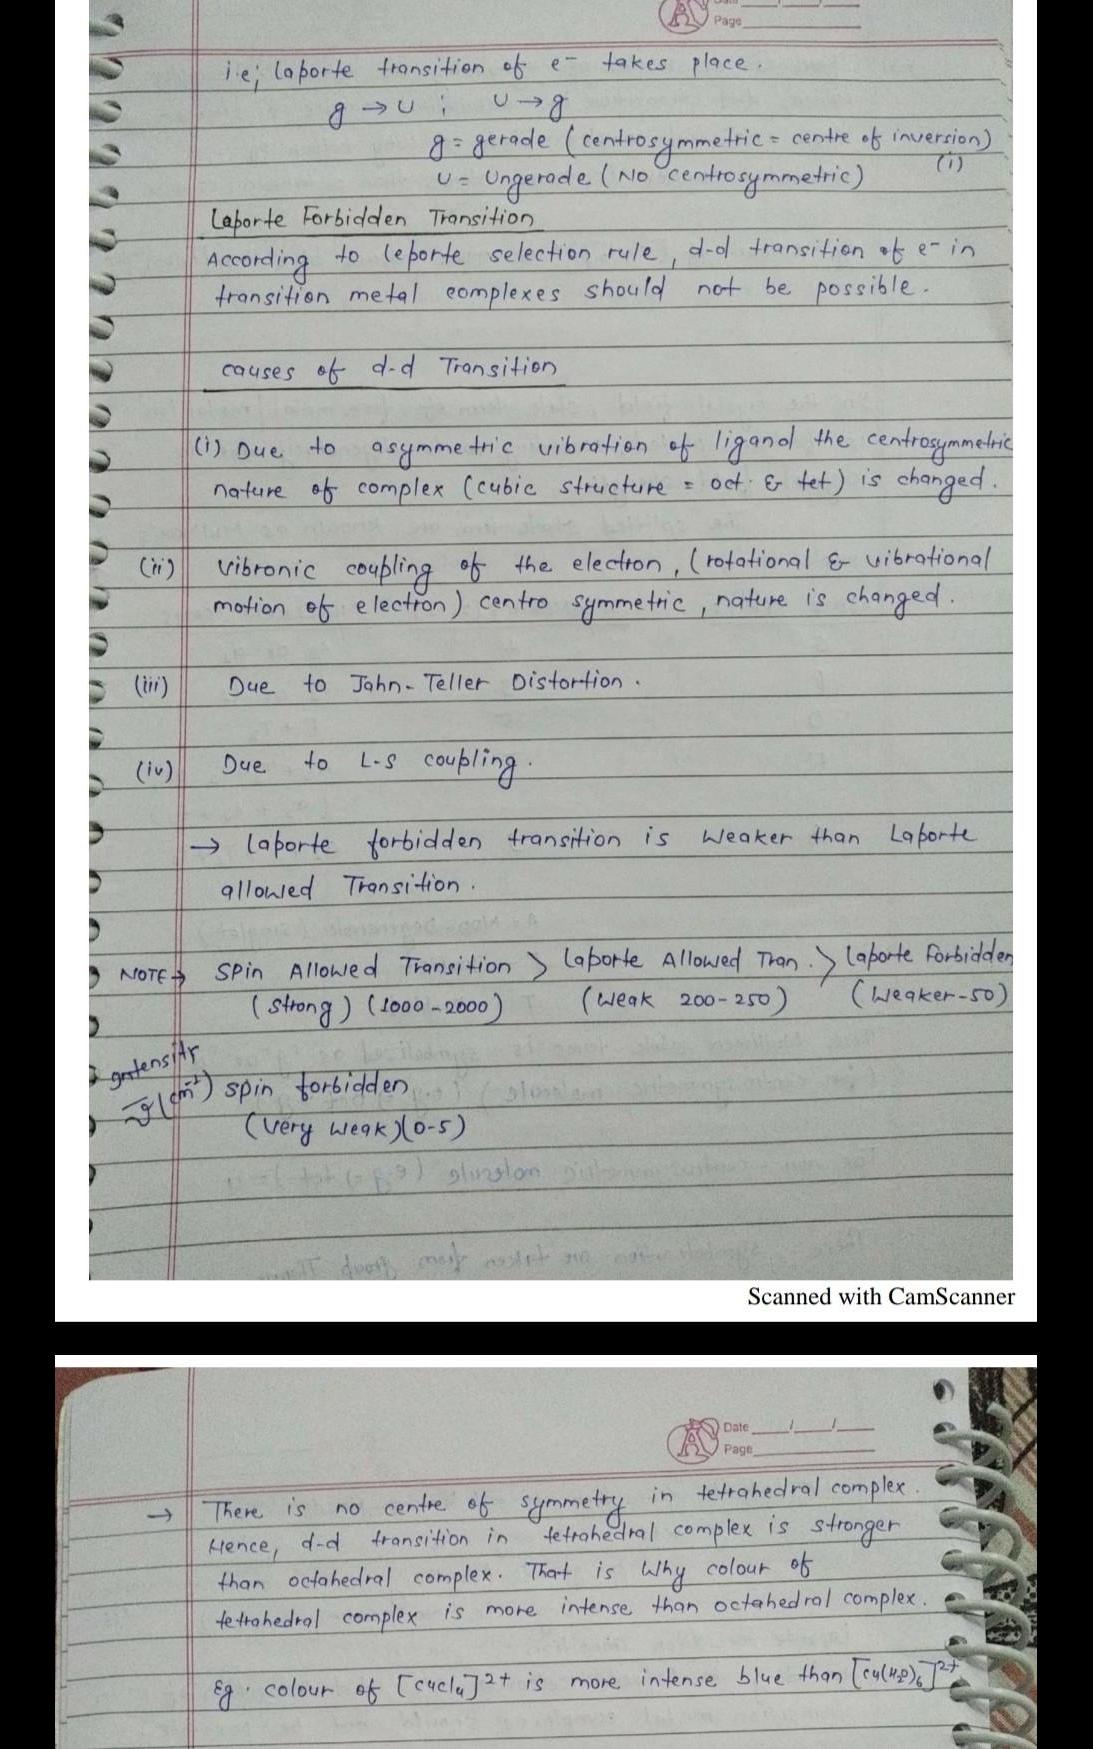 Page
i.e; Laporte transition of e- takes place.
g → U ; U → g
g = gerade (centrosymmetric = centre of inversion)
(i)
U = Ungerade (No centrosymmetric)
Laporte Forbidden Transition
According to leporte selection rule, d-d transition of e- in
transition metal complexes should not be possible.
causes of d-d Transition
(i) Due to asymmetric vibration of ligand the centrosymmetric
nature of complex (cubic structure = oct. & tet) is changed.
(ii) vibronic coupling of the electron, (rotational & vibrational
motion of electron) centro symmetric, nature is changed.
(iii) Due to Jahn-Teller Distortion.
(iv) Due to L-S coupling.
→ Laporte forbidden transition is weaker than Laporte
allowed Transition.
NOTE → Spin Allowed Transition > Laporte Allowed Tran. > Laporte Forbidden
(strong) (1000-2000) (Weak 200-250) (Weaker-50)
intensity
(cm⁻¹) spin forbidden
(very weak)(0-5)
Scanned with CamScanner
Date
Page
→ There is no centre of symmetry in tetrahedral complex.
Hence, d-d transition in tetrahedral complex is stronger
than octahedral complex. That is Why colour of
tetrahedral complex is more intense than octahedral complex.
Eg. colour of [CuCl4]2+ is more intense blue than [Cu(H2O)6]2+